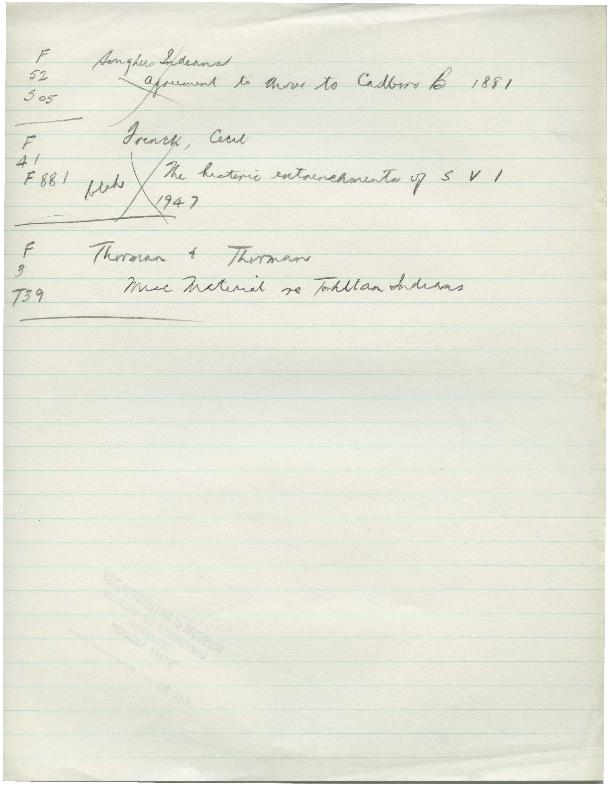 F
52
S 05
Songhees Indians
agreement to move to Cadboro B 1881
F
41
F 881
French, Cecil
The historic entrenchments of S V I
1947
F
3
T39
Thorman & Thorman
Misc Material re Tahltan Indians
MUSEUM of ANTHROPOLOGY